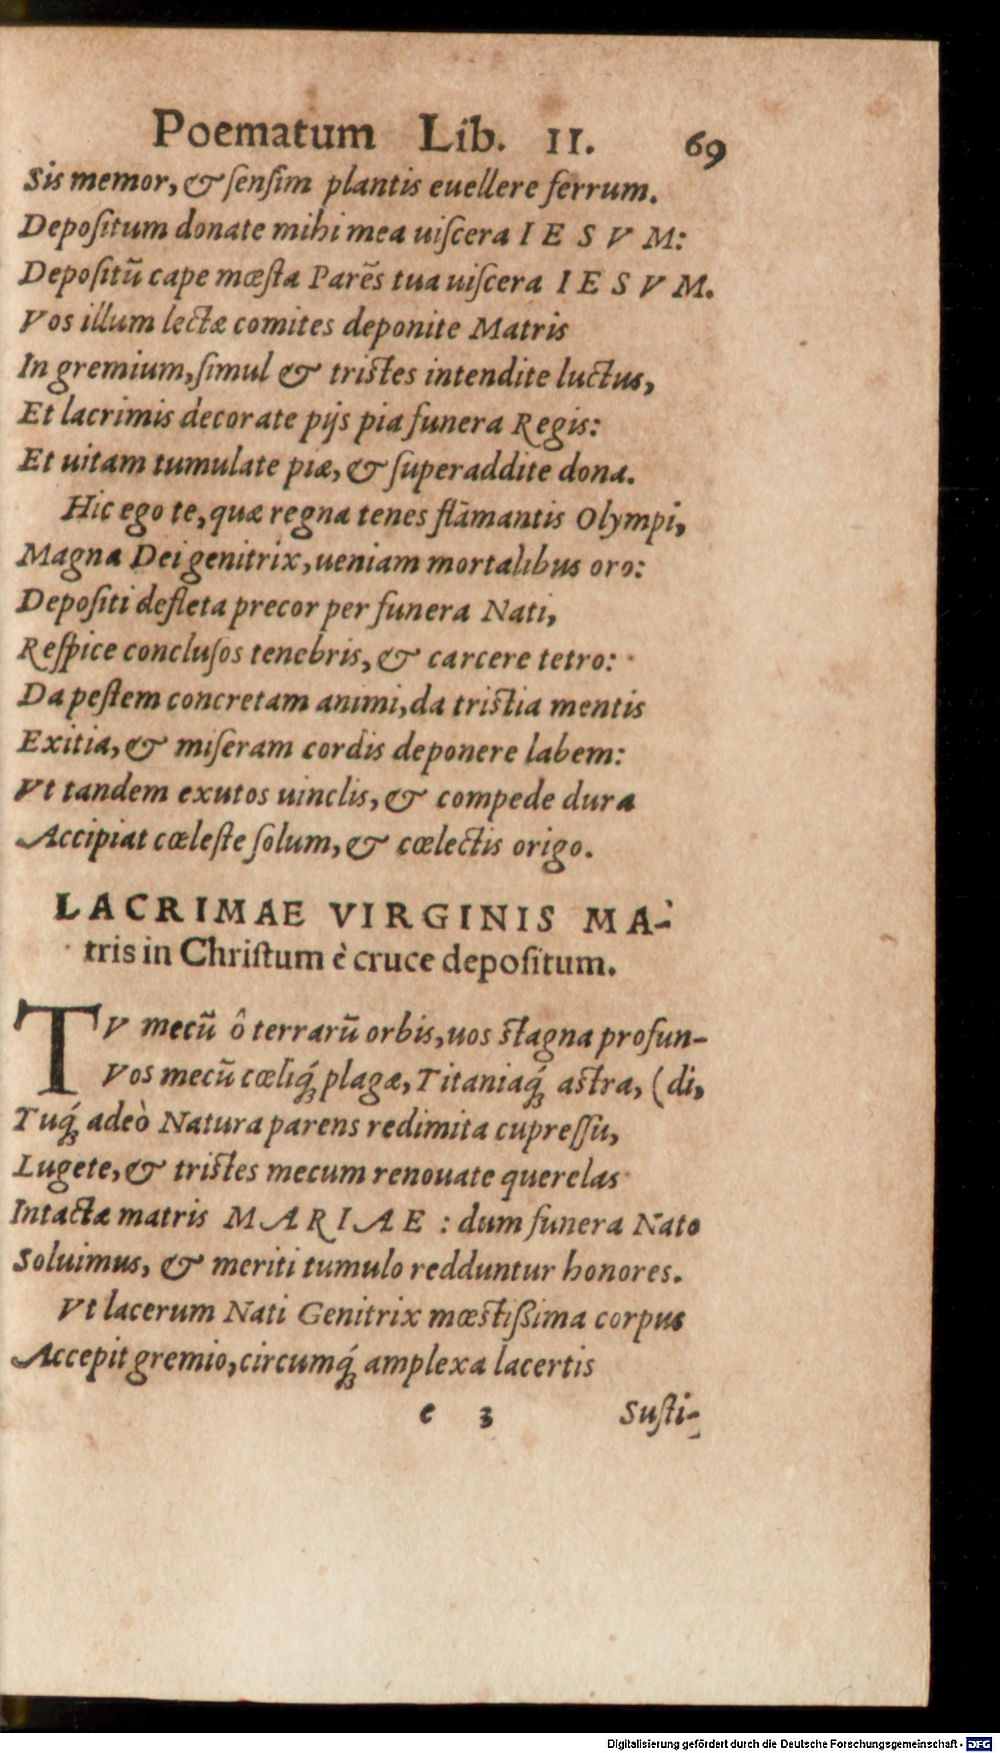 Poematum Lib. II. 69
Sis memor, & ſenſim plantis euellere ferrum.
Depoſitum donate mihi mea uiſcera I E S V M:
Depoſitū cape mœſta Parēs tua uiſcera I E S V M.
Vos illum lectæ comites deponite Matris
In gremium, ſimul & triſtes intendite luctus,
Et lacrimis decorate pijs pia funera Regis:
Et uitam tumulate piæ, & ſuperaddite dona.
Hic ego te, quæ regna tenes flāmantis Olympi,
Magna Dei genitrix, ueniam mortalibus oro:
Depoſiti defleta precor per funera Nati,
Reſpice concluſos tenebris, & carcere tetro:
Da peſtem concretam animi, da triſtia mentis
Exitia, & miſeram cordis deponere labem:
Vt tandem exutos uinclis, & compede dura
Accipiat cœleſte ſolum, & cœlectis origo.
LACRIMAE VIRGINIS MA-
tris in Chriſtum è cruce depoſitum.
TV mecū ô terrarū orbis, uos ſtagna profun-
Vos mecū cœliq́; plagæ, Titaniaq́; aſtra, (di,
Tuq́; adeò Natura parens redimita cupreſſu,
Lugete, & triſtes mecum renouate querelas
Intactæ matris M A R I A E : dum funera Nato
Soluimus, & meriti tumulo redduntur honores.
Vt lacerum Nati Genitrix mœſtißima corpus
Accepit gremio, circumq́; amplexa lacertis
e 3 Suſti-
Digitalisierung gefördert durch die Deutsche Forschungsgemeinschaft - DFG